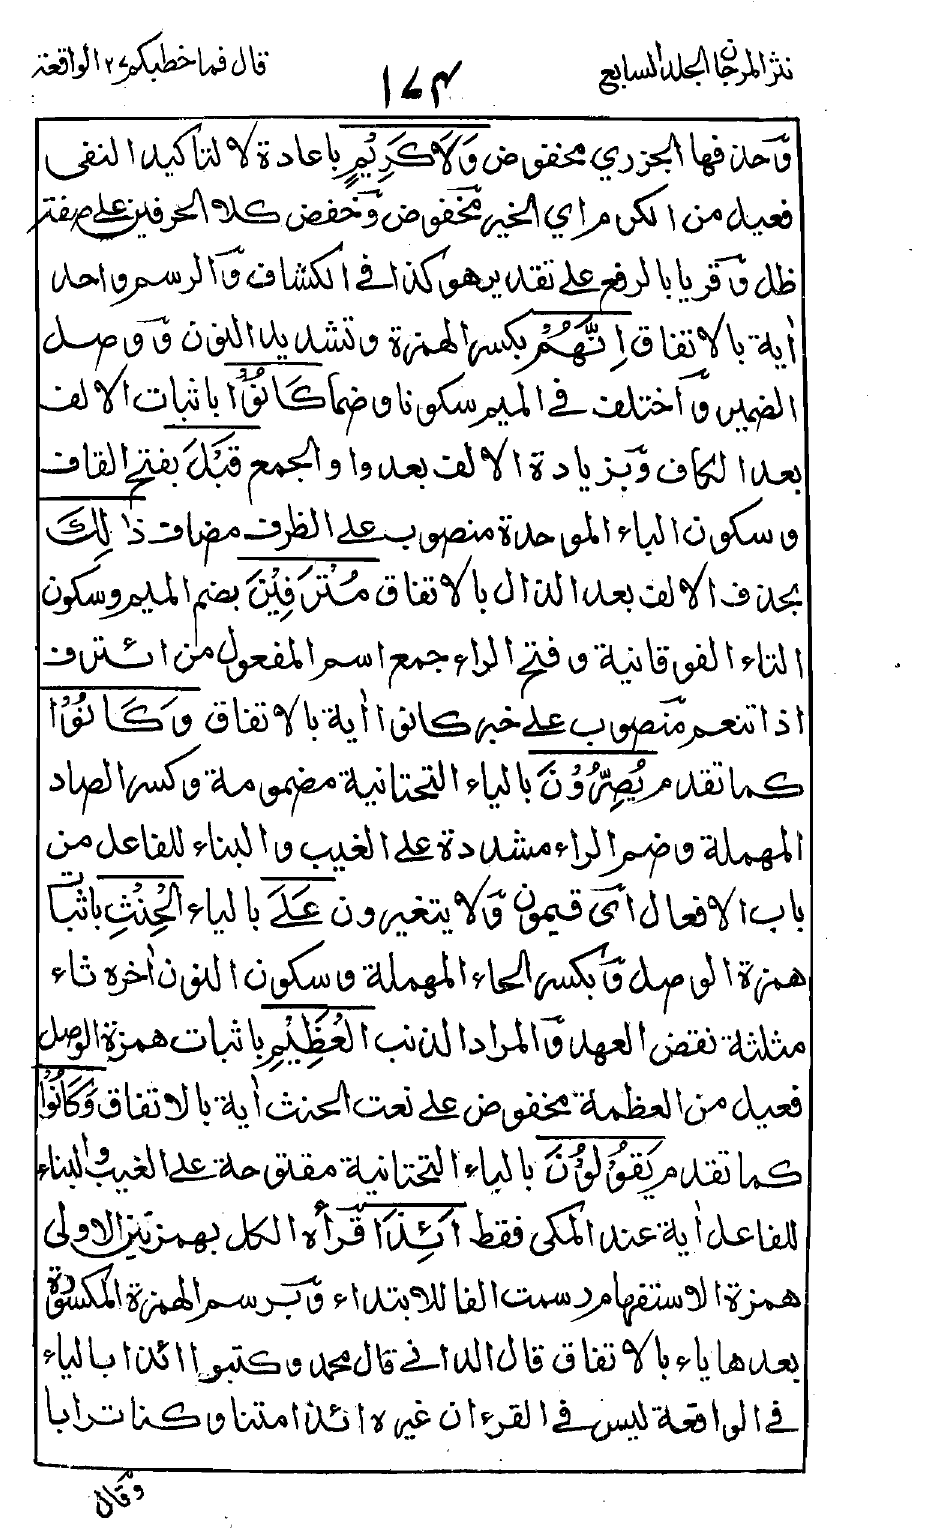 نثر المرجان الجلد السابع
١٧٤
قال فما خطبكم ٢٧ الواقعة
وحذفها الجزري مخفوض وَلَا كَرِيْمٍ باعادة لا لتاكيد النفى
فعيل من الكرم اي الخير مخفوض وخفض كلا الحرفين على صفة
ظل وقريا بالرفع على تقدير هو كذا في الكشاف والرسم واحد
أية بالاتفاق اِنَّهُمْ بكسر الهمزة وتشديد النون ووصل
الضمير واختلف في الميم سكونا وضما كَانُوْا باثبات الالف
بعد الكاف وبزيادة الالف بعد واو الجمع قَبْلَ بفتح القاف
وسكون الباء الموحدة منصوب على الظرف مضاف ذٰلِكَ
بحذف الالف بعد الذال بالاتفاق مُتْرَفِيْنَ بضم الميم وسكون
التاء الفوقانية وفتح الراء جمع اسم المفعول من ائترف
اذا تنعم منصوب على خبر كانوا أية بالاتفاق وَكَانُوْا
كما تقدم يُصِرُّوْنَ بالياء التحتانية مضمومة وكسر الصاد
المهملة وضم الراء مشددة على الغيب والبناء للفاعل من
باب الافعال اى قيمون ولا يتغيرون عَلَى بالياء الْحِنْثِ باثبات
همزة الوصل وبكسر الحاء المهملة وسكون النون أخره ثاء
مثلثة نقض العهد والمراد الذنب الْعَظِيْمِ باثبات همزة الوصل
فعيل من العظمة مخفوض على نعت الحنث أية بالاتفاق وَكَانُوْا
كما تقدم يَقُوْلُوْنَ بالياء التحتانية مفتوحة على الغيب والبناء
للفاعل أية عند المكى فقط اَئِذَا قرأه الكل بهمزتين الاولى
همزة الاستفهام رسمت الفا للابتداء وبرسم الهمزة المكسورة
بعدها ياء بالاتفاق قال الدانى قال محمد وكتبوا ائذا بالياء
في الواقعة ليس في القرءان غيره ائذا متنا وكنا ترابا
وقال